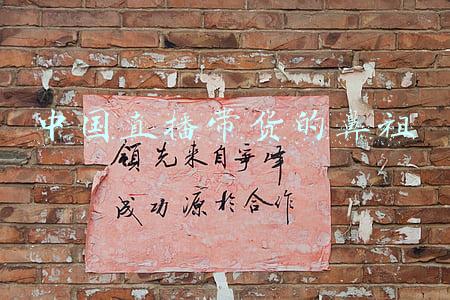 中国直播带货的鼻祖
领先来自争峰
成功源於合作